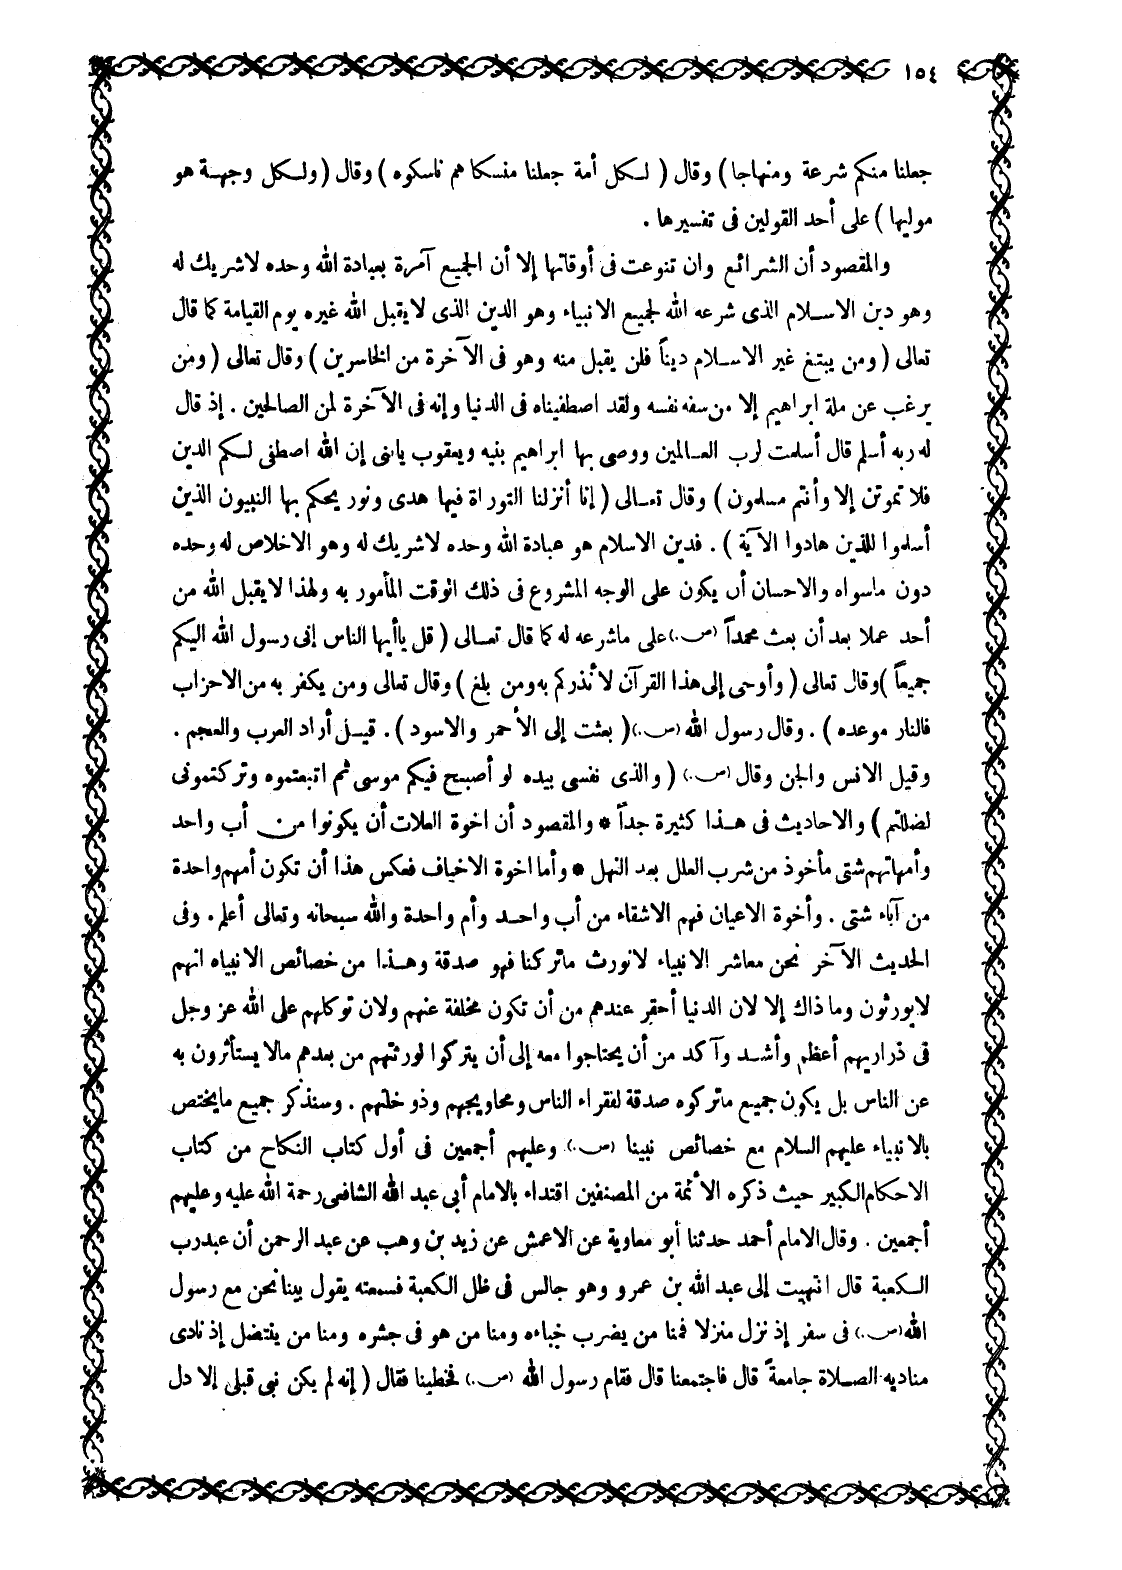 ١٥٤
جعلنا منكم شرعة ومنهاجا ) وقال ( لـكل أمة جعلنا منسكا هم ناسكوه ) وقال ( ولـكل وجهـة هو
موليها ) على أحد القولين فى تفسيرها .
والمقصود أن الشرائـع وان تنوعت فى أوقاتها إلا أن الجميع آمرة بعبادة الله وحده لاشريك له
وهو دين الاسـلام الذى شرعه الله لجميع الانبياء وهو الدين الذى لايقبل الله غيره يوم القيامة كما قال
تعالى ( ومن يبتغ غير الاسـلام ديناً فلن يقبل منه وهو فى الآخرة من الخاسرين ) وقال تعالى ( ومن
يرغب عن ملة ابراهيم إلا من سفه نفسه ولقد اصطفيناه فى الدنيا وإنه فى الآخرة لمن الصالحين . إذ قال
له ربه أسلم قال أسلمت لرب العـالمين ووصى بها ابراهيم بنيه ويعقوب يابنى إن الله اصطفى لـكم الدين
فلا تموتن إلا وأنتم مسلمون ) وقال تعـالى ( إنا أنزلنا التوراة فيها هدى ونور يحكم بها النبيون الذين
أسلموا للذين هادوا الآية ) . فدين الاسلام هو عبادة الله وحده لاشريك له وهو الاخلاص له وحده
دون ماسواه والاحسان أن يكون على الوجه المشروع فى ذلك الوقت المأمور به ولهذا لايقبل الله من
أحد عملا بعد أن بعث محمداً (ص.) على ماشرعه له كما قال تعـالى ( قل ياأيها الناس إنى رسول الله اليكم
جميعاً ) وقال تعالى ( وأوحى إلى هذا القرآن لأنذركم به ومن بلغ ) وقال تعالى ومن يكفر به من الاحزاب
فالنار موعده ) . وقال رسول الله (ص.) ( بعثت إلى الأحمر والاسود ) . قيـل أراد العرب والعجم .
وقيل الانس والجن وقال (ص.) ( والذى نفسى بيده لو أصبح فيكم موسى ثم اتبعتموه وتركتمونى
لضللتم ) والاحاديث فى هـذا كثيرة جداً * والمقصود أن اخوة العلات أن يكونوا من أب واحد
وأمهاتهم شتى مأخوذ من شرب العلل بعد النهل * وأما اخوة الاخياف فعكس هذا أن تكون أمهم واحدة
من آباء شتى . وأخوة الاعيان فهم الاشقاء من أب واحـد وأم واحدة والله سبحانه وتعالى أعلم . وفى
الحديث الآخر نحن معاشر الانبياء لانورث ماتركنا فهو صدقة وهـذا من خصائص الانبياء انهم
لايورثون وما ذاك إلا لان الدنيا أحقر عندهم من أن تكون مخلفة عنهم ولان توكلهم على الله عز وجل
فى ذراريهم أعظم وأشـد وآكد من أن يحتاجوا معه إلى أن يتركوا لورثتهم من بعدهم مالا يستأثرون به
عن الناس بل يكون جميع ماتركوه صدقة لفقراء الناس ومحاويجهم وذو خلتهم . وسنذكر جميع مايختص
بالانبياء عليهم السلام مع خصائص نبينا (ص.) وعليهم أجمعين فى أول كتاب النكاح من كتاب
الاحكام الكبير حيث ذكره الأئمة من المصنفين اقتداء بالامام أبى عبد الله الشافعى رحمة الله عليه وعليهم
أجمعين . وقال الامام أحمد حدثنا أبو معاوية عن الاعمش عن زيد بن وهب عن عبد الرحمن أن عبدرب
الـكعبة قال انتهيت إلى عبد الله بن عمرو وهو جالس فى ظل الكعبة فسمعته يقول بينا نحن مع رسول
الله (ص.) فى سفر إذ نزل منزلا فمنا من يضرب خباءه ومنا من هو فى جشره ومنا من ينتضل إذ نادى
مناديه الصـلاة جامعةً قال فاجتمعنا قال فقام رسول الله (ص.) فخطبنا فقال ( إنه لم يكن نبى قبلى إلا دل